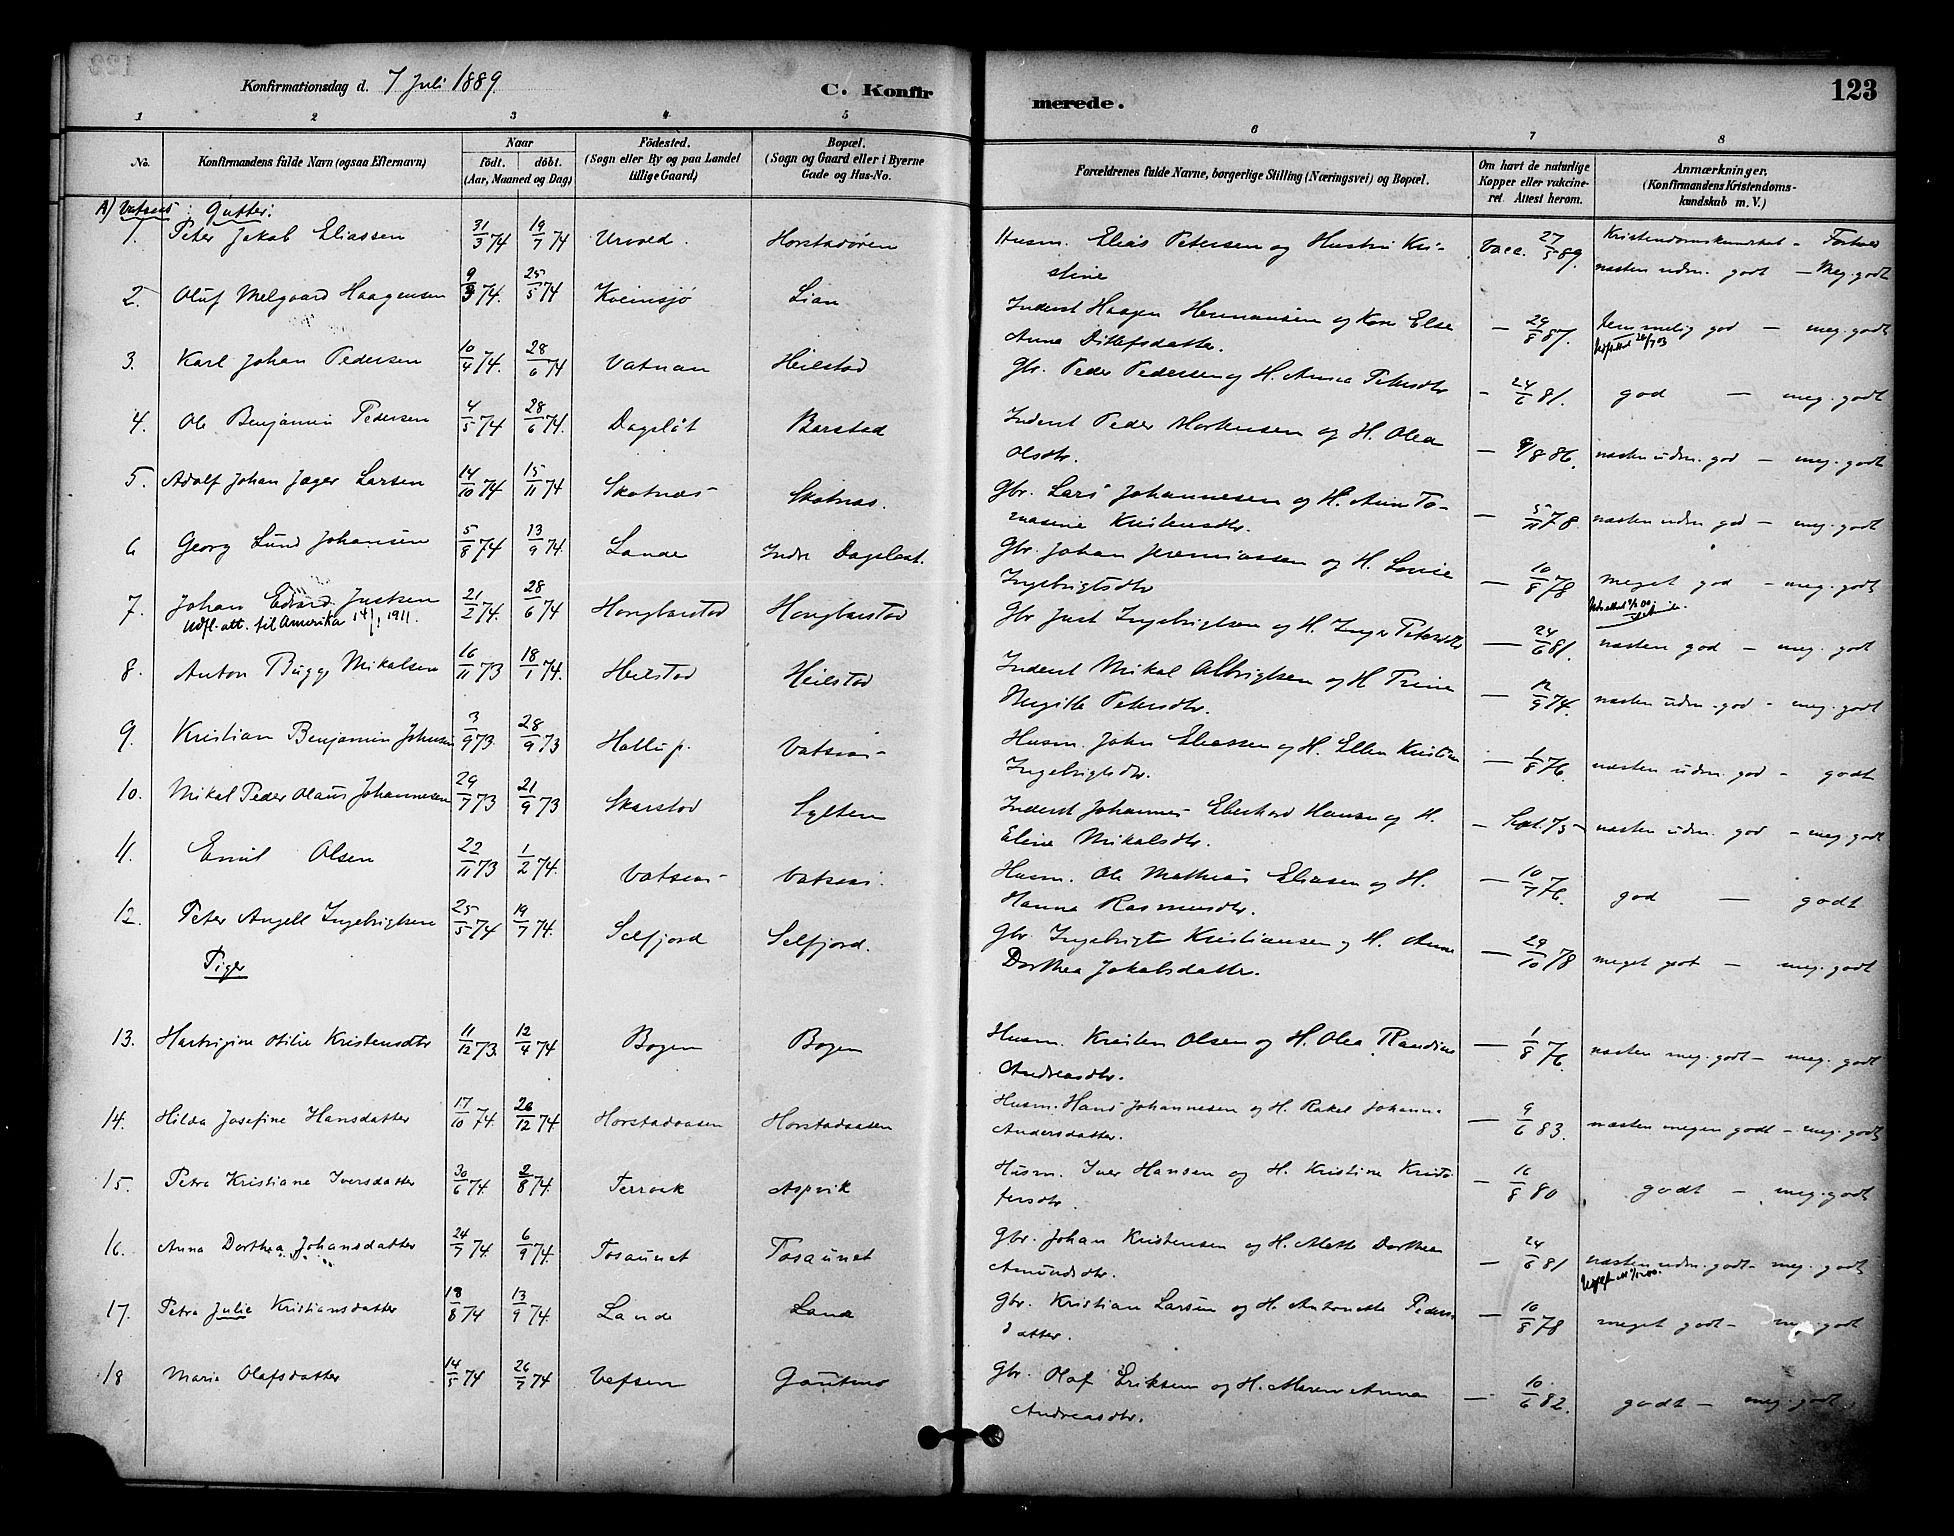 Konfirmationsdag d. 7 Juli 1889.
C. Konfirmerede.
123
1 2 3 4 5 6 7 8
No.
Konfirmandens fulde Navn (ogsaa Efternavn)
Naar
födt. döbt.
(Aar, Maaned og Dag)
Födested.
(Sogn eller By og paa Landet
tillige Gaard)
Bopæl.
(Sogn og Gaard eller i Byerne
Gade og Hus-No.
Forældrenes fulde Navne, borgerlige Stilling (Næringsvei) og Bopæl.
Om havt de naturlige
Kopper eller vakcine-
ret. Attest herom.
Anmærkninger.
(Konfirmandens Kristendoms-
kundskab m. V.)
A) Vatsaas: Gutter:
1. Peter Jakob Eliassen 31/3 74 19/7 74 Urvold. Horstadören Husm. Elias Petersen og Hustru Kri- Vacc. 27/5 89. Kristendomskundskab - Forhold
stine næsten udm. godt - Meg. godt
2. Oluf Melgaard Haagensen 9/3 74. 25/5 74 Kveinsjø Lian Inderst Haagen Hermansen og Kone Else
Anna Ditlefsdatter. - 29/8 87. temmelig god - meg. godt
3. Karl Johan Pedersen 10/4 74. 28/6 74 Vatnan Heilstad Gbr. Peder Pedersen og H. Anna Petersdtr - 24/6 81. god - meg. godt
4. Ole Benjamin Pedersen 4/5 74 28/6 74. Dagslöt Barstad Inderst Peder Mortensen og H. Olea
Olsdtr. - 9/8 86. næsten udm. god - meg. godt
5. Adolf Johan Jæger Larsen 14/10 74 15/11 74 Skotnæs Skotnæs. Gbr. Lars Johannesen og H. Anne To-
masine Kristensdtr. - 5/11 78. næsten udm. god - meg. godt
6 Georg Lund Johansen 5/8 74 13/9 74. Lande Indre Dagslaat. Gbr. Johan Jeremiassen og H. Lovise
Ingebrigtsdtr - 10/8 78 meget god - meg. godt
7. Johan Edvard Justsen 21/2 74. 28/6 74 Hongbarstad Hongbarstad Gbr Just Ingebrigtsen og H. Inger Petersdtr - 24/6 81. næsten god - meg. godt
Udfl. att. til Amerika 1911.
8. Anton Bugge Mikalsen 16/11 73 18/1 74. Heilstad Heilstad Inderst Mikal Albrigtsen og H Trine
Birgitte Petersdtr. - 12/9 74. næsten udm. god - meg. godt
9. Kristian Benjamin Johnsen 3/9 73 28/9 73 Vatsaas Husm. John Eliassen og H. Ellen Kristine
Ingebrigtsdtr. - 1/8 76. næsten udm. god - godt
10. Mikal Peder Olaus Johannesen 29/7 73 21/9 73 Skarstad Sylten Inderst Johannes Eberhard Hansen og H.
Eline Mikalsdtr. - Sept. 75 - næsten udm. god - meg. godt
11. Emil Olsen 22/11 73 1/2 74. Vatsaas Vatsaas. Husm. Ole Mathias Eliasen og H.
Hanna Rasmusdtr. - 10/7 76. god - godt
12. Peter Angell Ingebrigtsen 25/5 74 19/7 74. Selfjord Selfjord. Gbr. Ingebrigt Kristiansen og H. Anne
Dorthea Jakobsdatter. - 29/10 78 meget godt - meg. godt
Piger
13. Hartvigine Otilie Kristensdtr 11/12 73. 12/4 74 Bogen Bogen Husm. Kristen Olsen og H. Olea Randine
Andreasdtr. - 1/8 76. næsten meg. godt - meg. godt
14. Hilda Josefine Hansdatter 17/10 74. 26/12 74. Horstadaasen Horstadaasen Husm. Hans Johannesen og H. Rakel Johanna
Andersdatter. - 9/6 83. næsten megen godt - meg. godt
15. Petra Kristiane Iversdatter 30/6 74. 2/8 74. Terraak Aspvik Husm. Iver Hansen og H. Kristine Kristo-
fersdtr. - 16/8 80 godt - meg. godt
16. Anna Dorthea Johansdatter 24/7 74. 6/9 74. Tosaunet Tosaunet Gbr. Johan Kristensen og H. Mette Dorthea
Amundsdtr. - 24/6 81 næsten udm. godt - meg. godt
17. Petra Julie Kristiansdatter 18/8 74 13/9 74. Lande Lande Gbr. Kristian Larsen og H. Antonette Peders-
datter. - 10/8 78 meget godt - meg. godt
18 Maria Olafsdatter 14/5 74 26/7 74 Vefsen Gbr. Olaf Eriksen og H. Maren Anna
Andreasdtr. - 10/6 82. godt - meg. godt